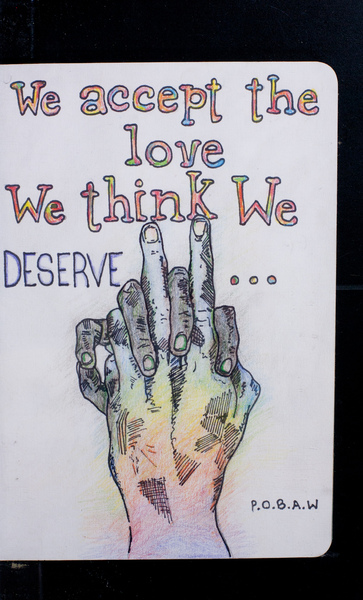 We accept the
love
We think We
DESERVE ...
P.O.B.A.W